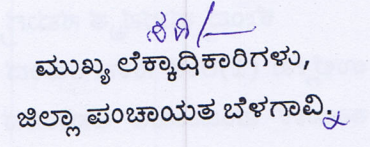 ಸಹಿ/-
ಮುಖ್ಯ ಲೆಕ್ಕಾದಿಕಾರಿಗಳು,
ಜಿಲ್ಲಾ ಪಂಚಾಯತ ಬೆಳಗಾವಿ.